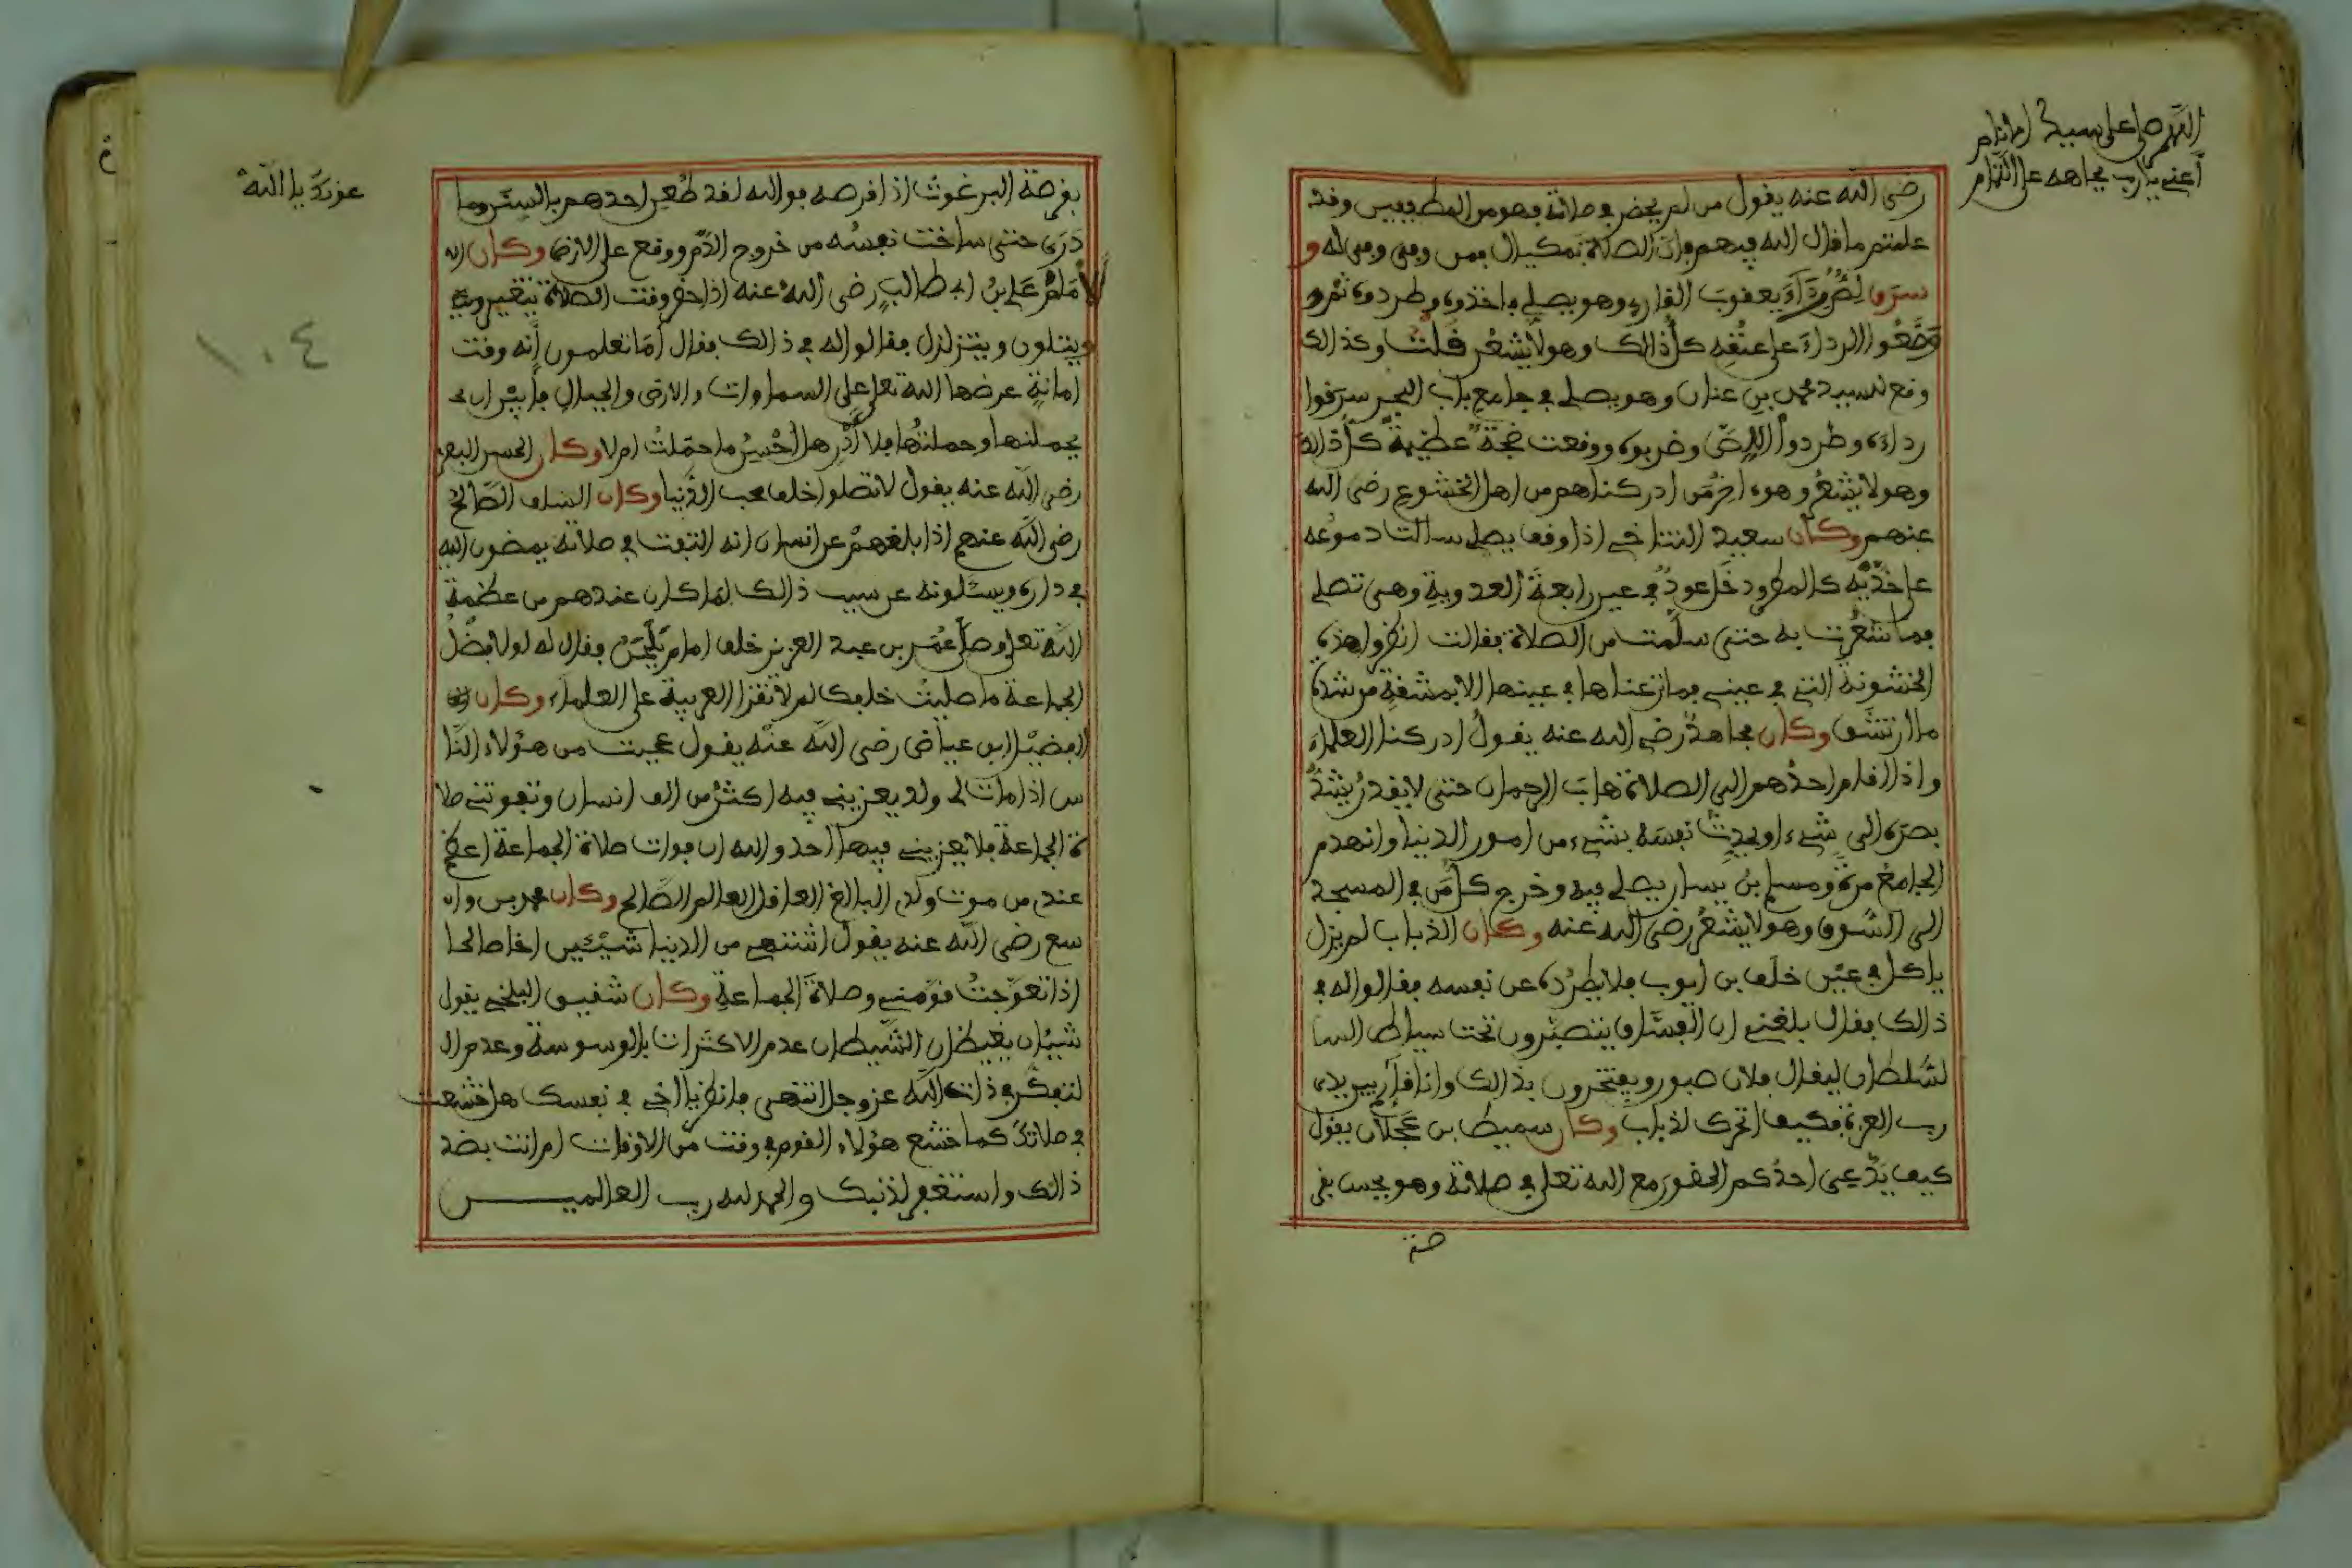 اللهم صل على سيد الانام
أعني يا رب بجاهه على التمام
رضي الله عنه يقول من لم يحضر في صلاته فهو من المطففين وقد
علمتم ما قال الله فيهم فإن الصلاة بمكيال فمن وفى وفي له و
سرق لص رداء يعقوب القارئ وهو يصلي فاخذوه وطردوه ثم و
وضعوا الرداء على عنقه كل ذالك وهو لا يشعر قلت وكذالك
وقع لسيد محمد بن عنان وهو يصلي في جامع باب البحر سرقوا
رداءه وطردوا اللص وضربوه ووقعت ضجة عظيمة كل ذالك
وهو لا يشعر وهو ءاخر من ادركناهم من اهل الخشوع رضي الله
عنهم وكان سعيد التنتاخي اذا وقف يصلي سالت دموعه
على خديه كالمطر ودخل عود في عين رابعة العدوية وهي تصلي
فما شعرت به حتى سلمت من الصلاة فقالت انظروا هذه
الخشونة التي في عيني فما نزعناها في عينها الا بمشقة من شدة
ما ارتشق وكان مجاهد رضي الله عنه يقول ادركنا العلماء
واذا قام احدهم الى الصلاة هاب الرحمان حتى لا يقدر يشد
بصره الى شيء او يحدث نفسه بشيء من امور الدنيا وانهدم
الجامع مرة ومسلم بن يسار يصلي فيه وخرج كل من في المسجد
الى السوق وهو لا يشعر رضي الله عنه وكان الذباب لم يزل
ياكل في عين خلف بن ايوب فلا يطرده عن نفسه فقالوا له في
ذالك فقال بلغني ان الفساق يتصبرون تحت سياط السا
لسلطان ليقال فلان صبور ويفتخرون بذالك وانا قائم بين يدي
رب العزة فكيف اتحرك لذباب وكان سميط بن عجلان يقول
كيف يدعى احدكم الحضور مع الله تعلى في صلاته وهو يحس بقر
صة
عونك يا الله
١٠٤
بقرصة البرغوث اذا قرصه فوالله لقد طعن احدهم بالسنر وما
درى حتى ساخت نفسه من خروج الدم ووقع على الارض وكان الا
لامام علي بن ابي طالب رضي الله عنه اذا حضر وقت الصلاة يتغير
ويتلون ويتزلزل فقالوا له في ذالك فقال أما تعلمون أنه وقت
امانة عرضها الله تعلى على السماوات والارض والجبال فأبين ان
يحملنها وحملتها فلا أدر هل أحسن ما حملت ام لا وكان الحسن البصر
رضي الله عنه يقول لا تصلوا خلف محب الدنيا وكان السلف الصالح
رضي الله عنهم اذا بلغهم عن انسان انه التفت في صلاته يمضون اليه
في داره ويسئلونه عن سبب ذالك لما كان عندهم من عظمة
الله تعلى وصلى عمر بن عبد العزيز خلف امام يلحن فقال له لولا فضل
الجماعة ما صليت خلفك لم لا تقرا العربية على العلماء وكان
الفضيل ابن عياض رضي الله عنه يقول عجبت من هؤلاء النا
س اذا مات لي ولد يعزيني فيه اكثر من الف انسان وتفوتني صلا
ة الجماعة فلا يعزيني فيها احد والله ان فوات صلاة الجماعة اعظم
عندي من موت ولدي البالغ العاقل العالم الصالح وكان محمد بن وا
سع رضي الله عنه يقول اشتهي من الدنيا شيئين اخا صالحا
اذا تعوجت قومني وصلاة الجماعة وكان شقيق البلخي يقول
شيئان يغيظان الشيطان عدم الاكتراث بالوسوسة وعدم ال
لتفكر في ذات الله عز وجل انتهى فانظر يا اخي في نفسك هل خشعت
في صلاتك كما خشع هؤلاء القوم في وقت من الاوقات ام انت بضد
ذالك واستغفر لذنبك والحمد لله رب العالميــــن